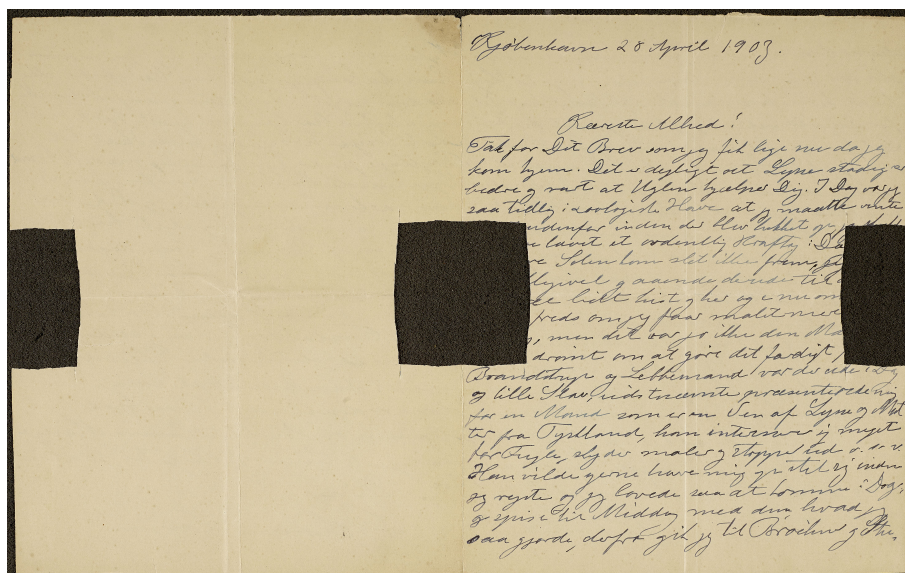 Kjøbenhavn 28 April 1903.
Kæreste Alhed!
Tak for Dit Brev som jeg fik lige nu da jeg
kom hjem. Det er dejligt at Lysse stadig er
bedre og rart at Uglen hjælper Dig. I Dag var jeg
saa tidlig i zoologisk Have at jeg maatte vente
udenfor inden der blev lukket op
lavet et ordentlig
Solen kom slet ikke frem,
alligevel gaaende derude til
lidt hist og her og
freds om jeg faar malet mere
, men det var jo ikke den
drømt om at gøre det færdigt,
Brandstrup og Lebbemand var der ikke i Dag
og lille Slav, præsenterede mig
for en Mand som er en Ven af Lysse og
ter fra Tyskland, han interesserer sig meget
for Fugle, skyder maler og stopper ud o. s. v.
Han vilde gerne have mig op til sig inden
og rejste og jeg lovede saa at komme i Dag
og spise til Middag med dem hvad jeg
saa gjorde, derfra gik jeg til